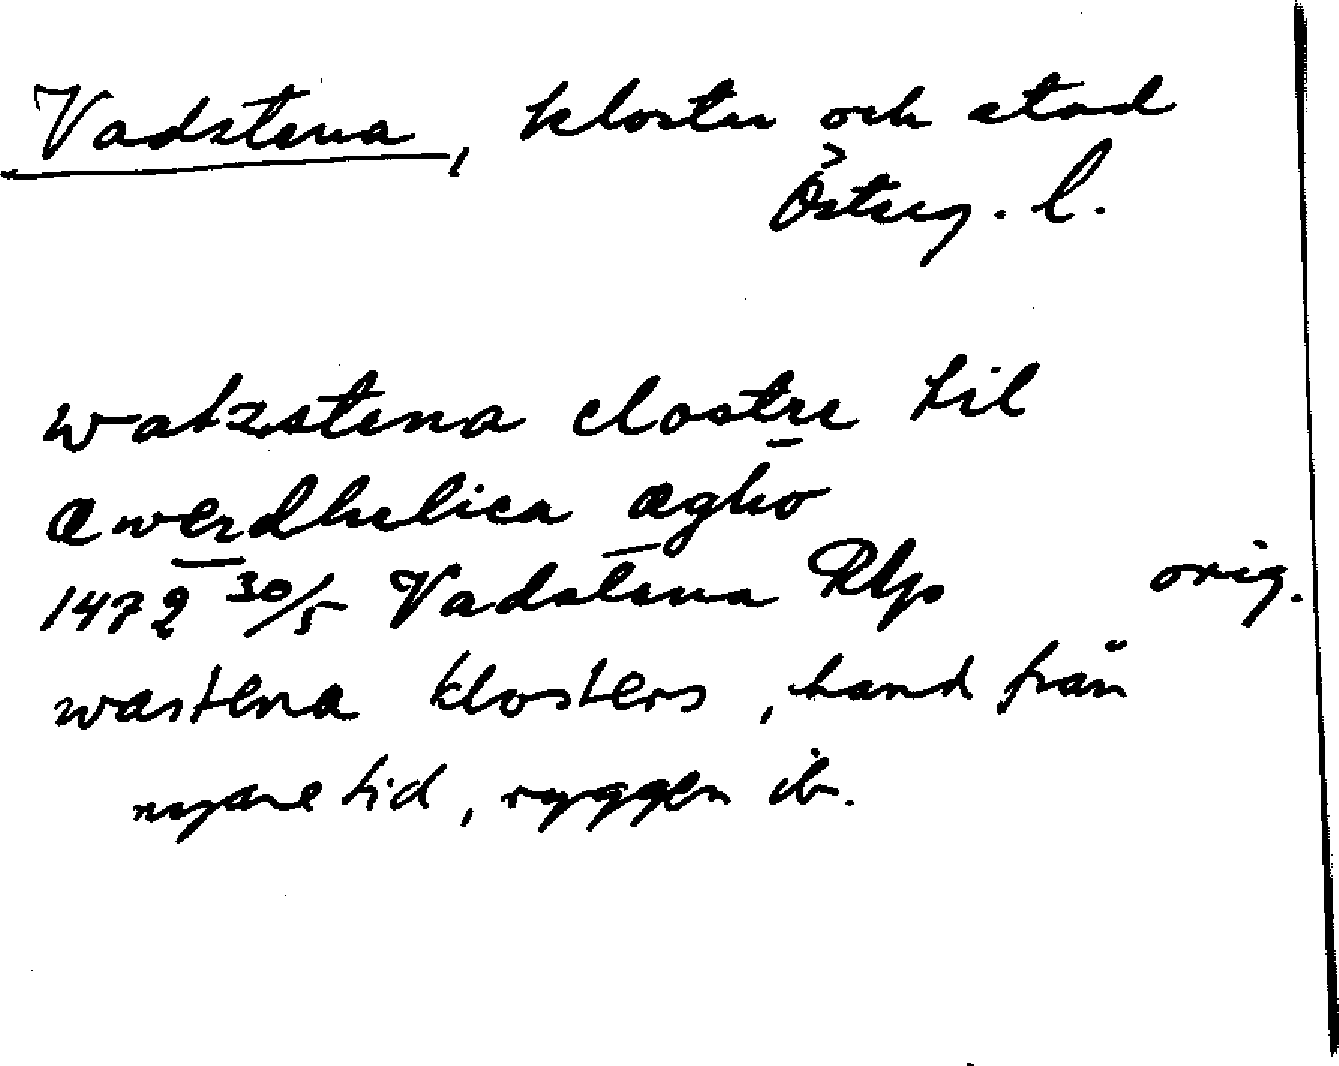 Vadstena, kloster och stad
Österg. l.
watzstena clostre til
æwerdhelica ægho
1472 30/5 Vadstena RAp orig.
wastena klosters, hand från
nyare tid, ryggen ib.